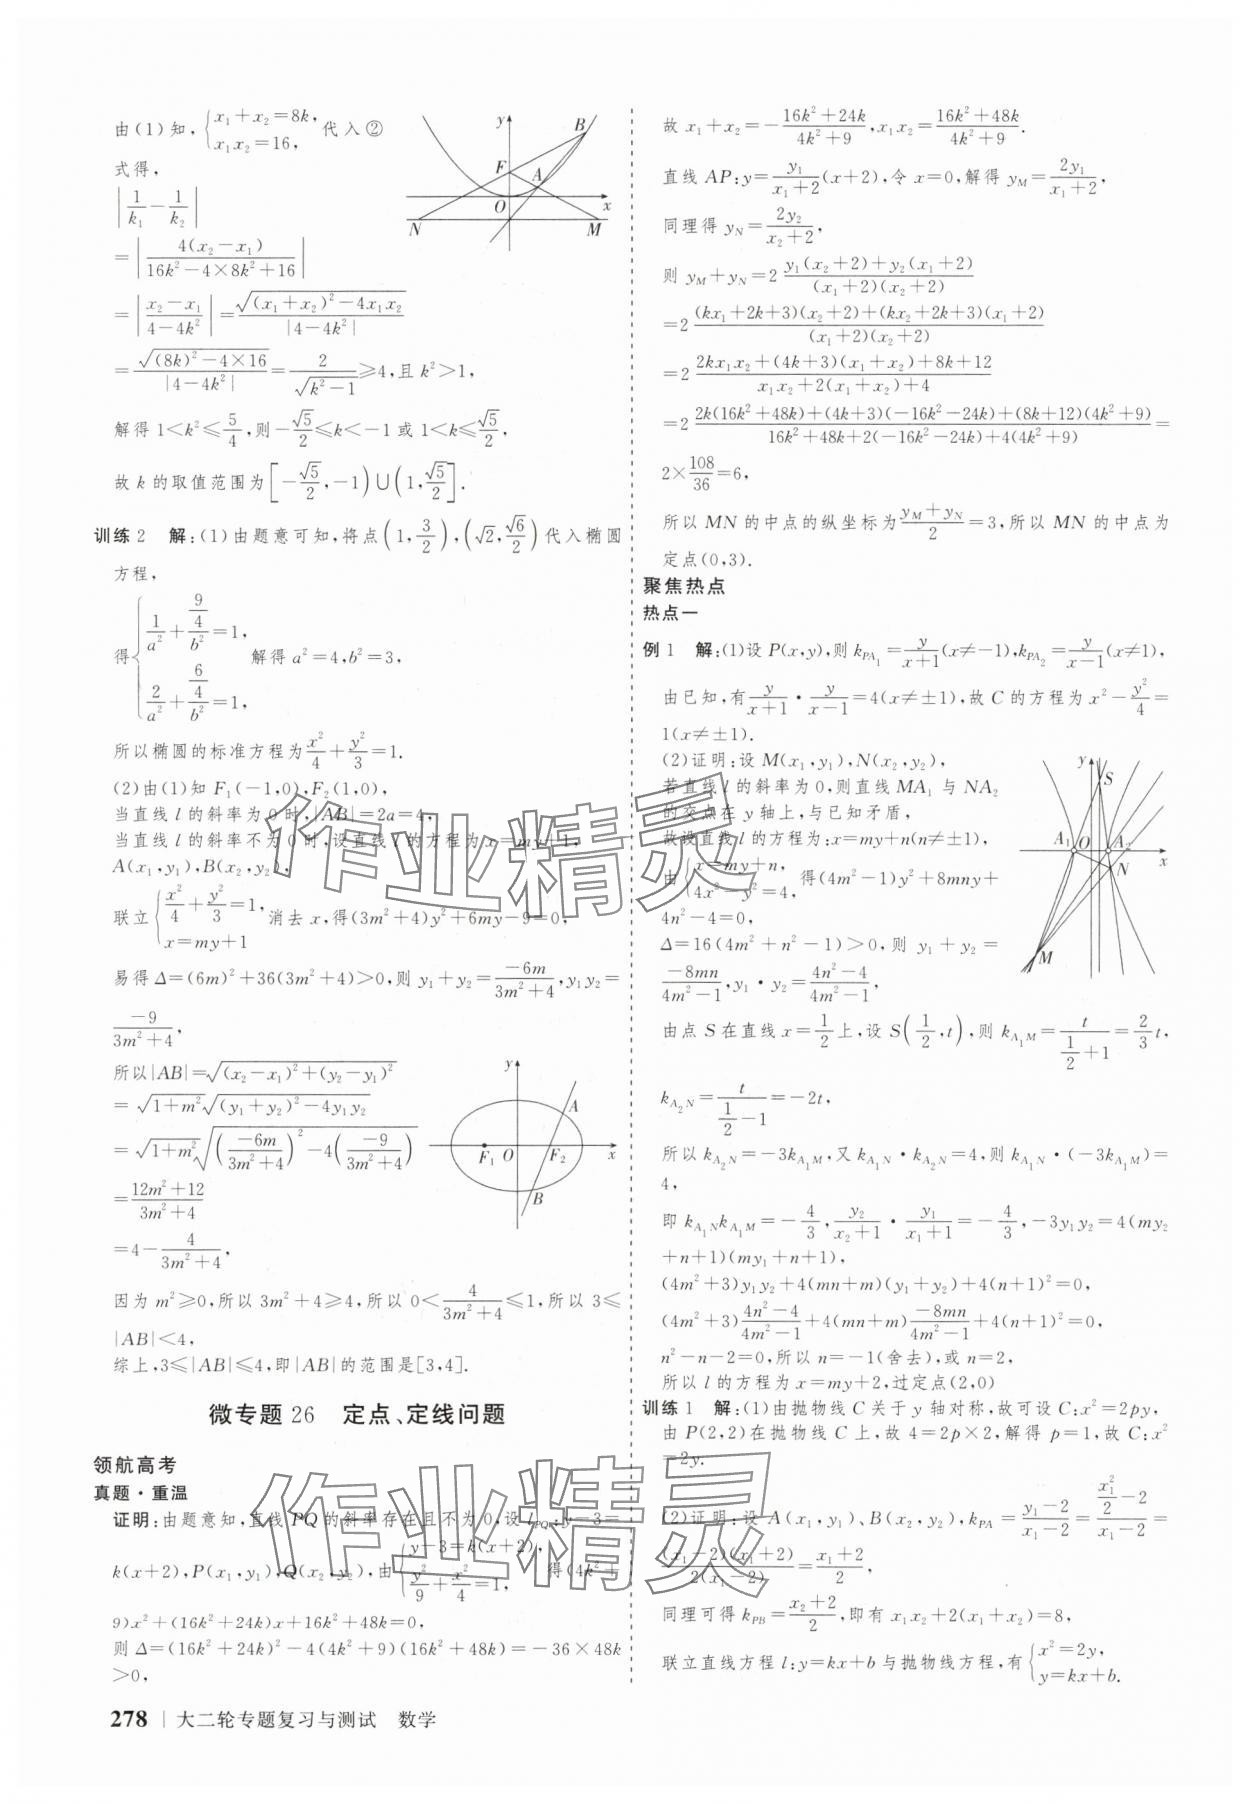 由(1)知,{x₁+x₂=8k, x₁x₂=16, 代入②
式得,
|1/k₁-1/k₂|
=|4(x₂-x₁)/(16k²-4×8k²+16)|
=|(x₂-x₁)/(4-4k²)|=√((x₁+x₂)²-4x₁x₂)/|4-4k²|
=√((8k)²-4×16)/|4-4k²|=2/√(k²-1)≥4,且k²>1,
解得1<k²≤5/4,则-√5/2≤k<-1或1<k≤√5/2,
故k的取值范围为[-√5/2,-1)∪(1,√5/2].
y B F A O x N M
训练2 解:(1)由题意可知,将点(1,3/2),(√2,√6/2)代入椭圆
方程,
得{1/a²+(9/4)/b²=1, 2/a²+(6/4)/b²=1, 解得a²=4,b²=3,
所以椭圆的标准方程为x²/4+y²/3=1.
(2)由(1)知F₁(-1,0),F₂(1,0),
当直线l的斜率为0时,|AB|=2a=4,
当直线l的斜率不为0时,设直线l的方程为x=my+1,
A(x₁,y₁),B(x₂,y₂),
联立{x²/4+y²/3=1, x=my+1 消去x,得(3m²+4)y²+6my-9=0,
易得Δ=(6m)²+36(3m²+4)>0,则y₁+y₂=-6m/(3m²+4),y₁y₂=
-9/(3m²+4),
所以|AB|=√((x₂-x₁)²+(y₂-y₁)²)
=√(1+m²)√((y₁+y₂)²-4y₁y₂)
=√(1+m²)√((-6m/(3m²+4))²-4(-9/(3m²+4)))
=(12m²+12)/(3m²+4)
=4-4/(3m²+4),
y A F₁ O F₂ x B
因为m²≥0,所以3m²+4≥4,所以0<4/(3m²+4)≤1,所以3≤
|AB|<4,
综上,3≤|AB|≤4,即|AB|的范围是[3,4].
微专题26 定点、定线问题
领航高考
真题·重温
证明:由题意知,直线PQ的斜率存在且不为0,设l_PQ:y-3=
k(x+2),P(x₁,y₁),Q(x₂,y₂),由{y-3=k(x+2), y²/9+x²/4=1, 得(4k²+
9)x²+(16k²+24k)x+16k²+48k=0,
则Δ=(16k²+24k)²-4(4k²+9)(16k²+48k)=-36×48k
>0,
278 | 大二轮专题复习与测试 数学
故x₁+x₂=-(16k²+24k)/(4k²+9),x₁x₂=(16k²+48k)/(4k²+9).
直线AP:y=y₁/(x₁+2)(x+2),令x=0,解得y_M=2y₁/(x₁+2),
同理得y_N=2y₂/(x₂+2),
则y_M+y_N=2(y₁(x₂+2)+y₂(x₁+2))/((x₁+2)(x₂+2))
=2((kx₁+2k+3)(x₂+2)+(kx₂+2k+3)(x₁+2))/((x₁+2)(x₂+2))
=2(2kx₁x₂+(4k+3)(x₁+x₂)+8k+12)/(x₁x₂+2(x₁+x₂)+4)
=2(2k(16k²+48k)+(4k+3)(-16k²-24k)+(8k+12)(4k²+9))/(16k²+48k+2(-16k²-24k)+4(4k²+9))=
2×108/36=6,
所以MN的中点的纵坐标为(y_M+y_N)/2=3,所以MN的中点为
定点(0,3).
聚焦热点
热点一
例1 解:(1)设P(x,y),则k_PA₁=y/(x+1)(x≠-1),k_PA₂=y/(x-1)(x≠1),
由已知,有y/(x+1)·y/(x-1)=4(x≠±1),故C的方程为x²-y²/4=
1(x≠±1).
(2)证明:设M(x₁,y₁),N(x₂,y₂),
若直线l的斜率为0,则直线MA₁与NA₂
的交点在y轴上,与已知矛盾,
故设直线l的方程为:x=my+n(n≠±1),
由{x=my+n, 4x²-y²=4, 得(4m²-1)y²+8mny+
4n²-4=0,
Δ=16(4m²+n²-1)>0,则y₁+y₂=
-8mn/(4m²-1),y₁·y₂=(4n²-4)/(4m²-1),
y S A₁ O A₂ x N M
由点S在直线x=1/2上,设S(1/2,t),则k_A₁M=t/(1/2+1)=2/3t,
k_A₂N=t/(1/2-1)=-2t,
所以k_A₂N=-3k_A₁M,又k_A₁N·k_A₂N=4,则k_A₁N·(-3k_A₁M)=
4,
即k_A₁Nk_A₁M=-4/3,y₂/(x₂+1)·y₁/(x₁+1)=-4/3,-3y₁y₂=4(my₂
+n+1)(my₁+n+1),
(4m²+3)y₁y₂+4(mn+m)(y₁+y₂)+4(n+1)²=0,
(4m²+3)(4n²-4)/(4m²-1)+4(mn+m)(-8mn)/(4m²-1)+4(n+1)²=0,
n²-n-2=0,所以n=-1(舍去),或n=2,
所以l的方程为x=my+2,过定点(2,0)
训练1 解:(1)由抛物线C关于y轴对称,故可设C:x²=2py,
由P(2,2)在抛物线C上,故4=2p×2,解得p=1,故C:x²
=2y.
(2)证明:设A(x₁,y₁)、B(x₂,y₂),k_PA=(y₁-2)/(x₁-2)=(x₁²/2-2)/(x₁-2)=
(x₁-2)(x₁+2)/(2(x₁-2))=(x₁+2)/2,
同理可得k_PB=(x₂+2)/2,即有x₁x₂+2(x₁+x₂)=8,
联立直线方程l:y=kx+b与抛物线方程,有{x²=2y, y=kx+b.
作业精灵
作业精灵